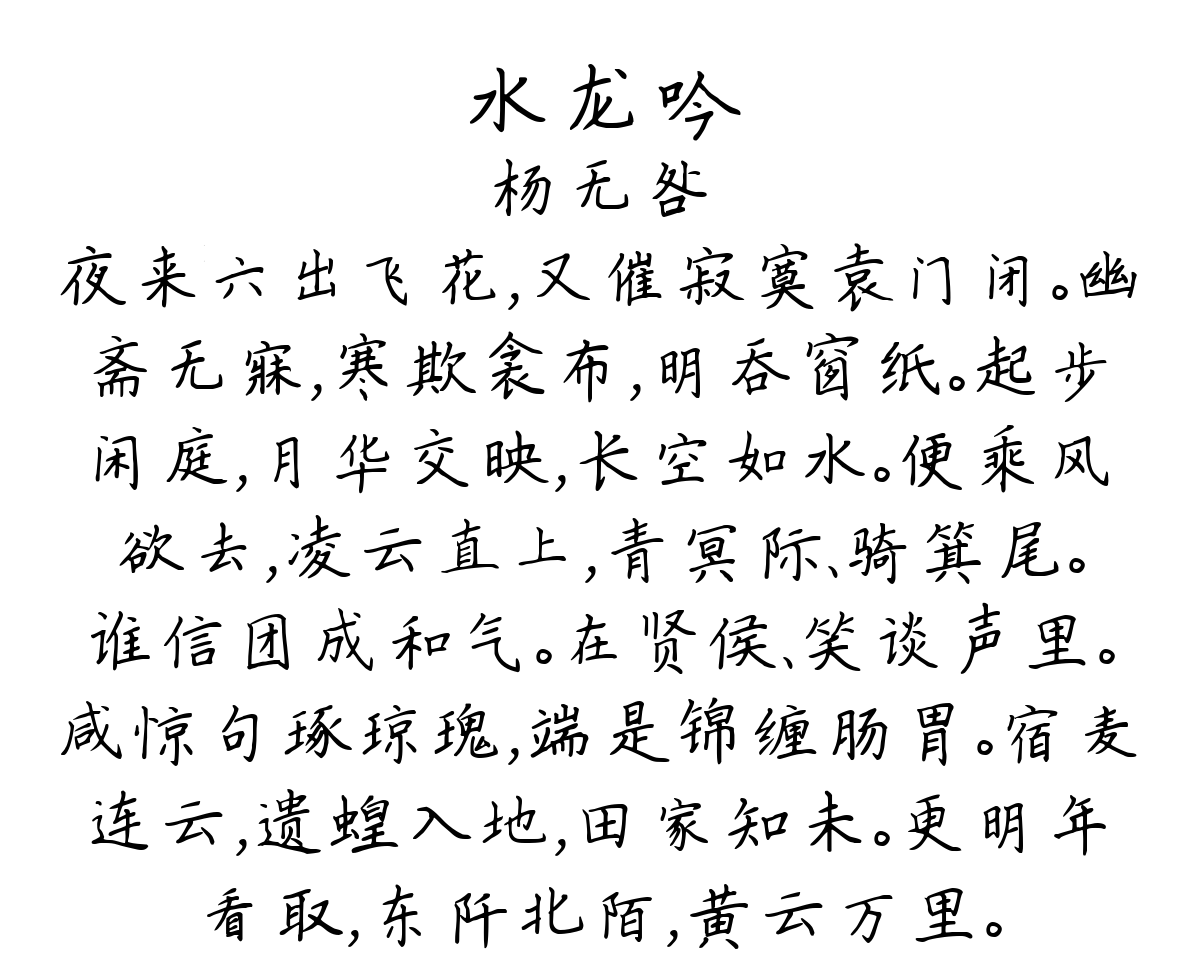 水龙吟
杨无咎
夜来六出飞花,又催寂寞袁门闭。幽
斋无寐,寒欺衾布,明吞窗纸。起步
闲庭,月华交映,长空如水。便乘风
欲去,凌云直上,青冥际、骑箕尾。
谁信团成和气。在贤侯、笑谈声里。
咸惊句琢琼瑰,端是锦缠肠胃。宿麦
连云,遗蝗入地,田家知未。更明年
看取,东阡北陌,黄云万里。